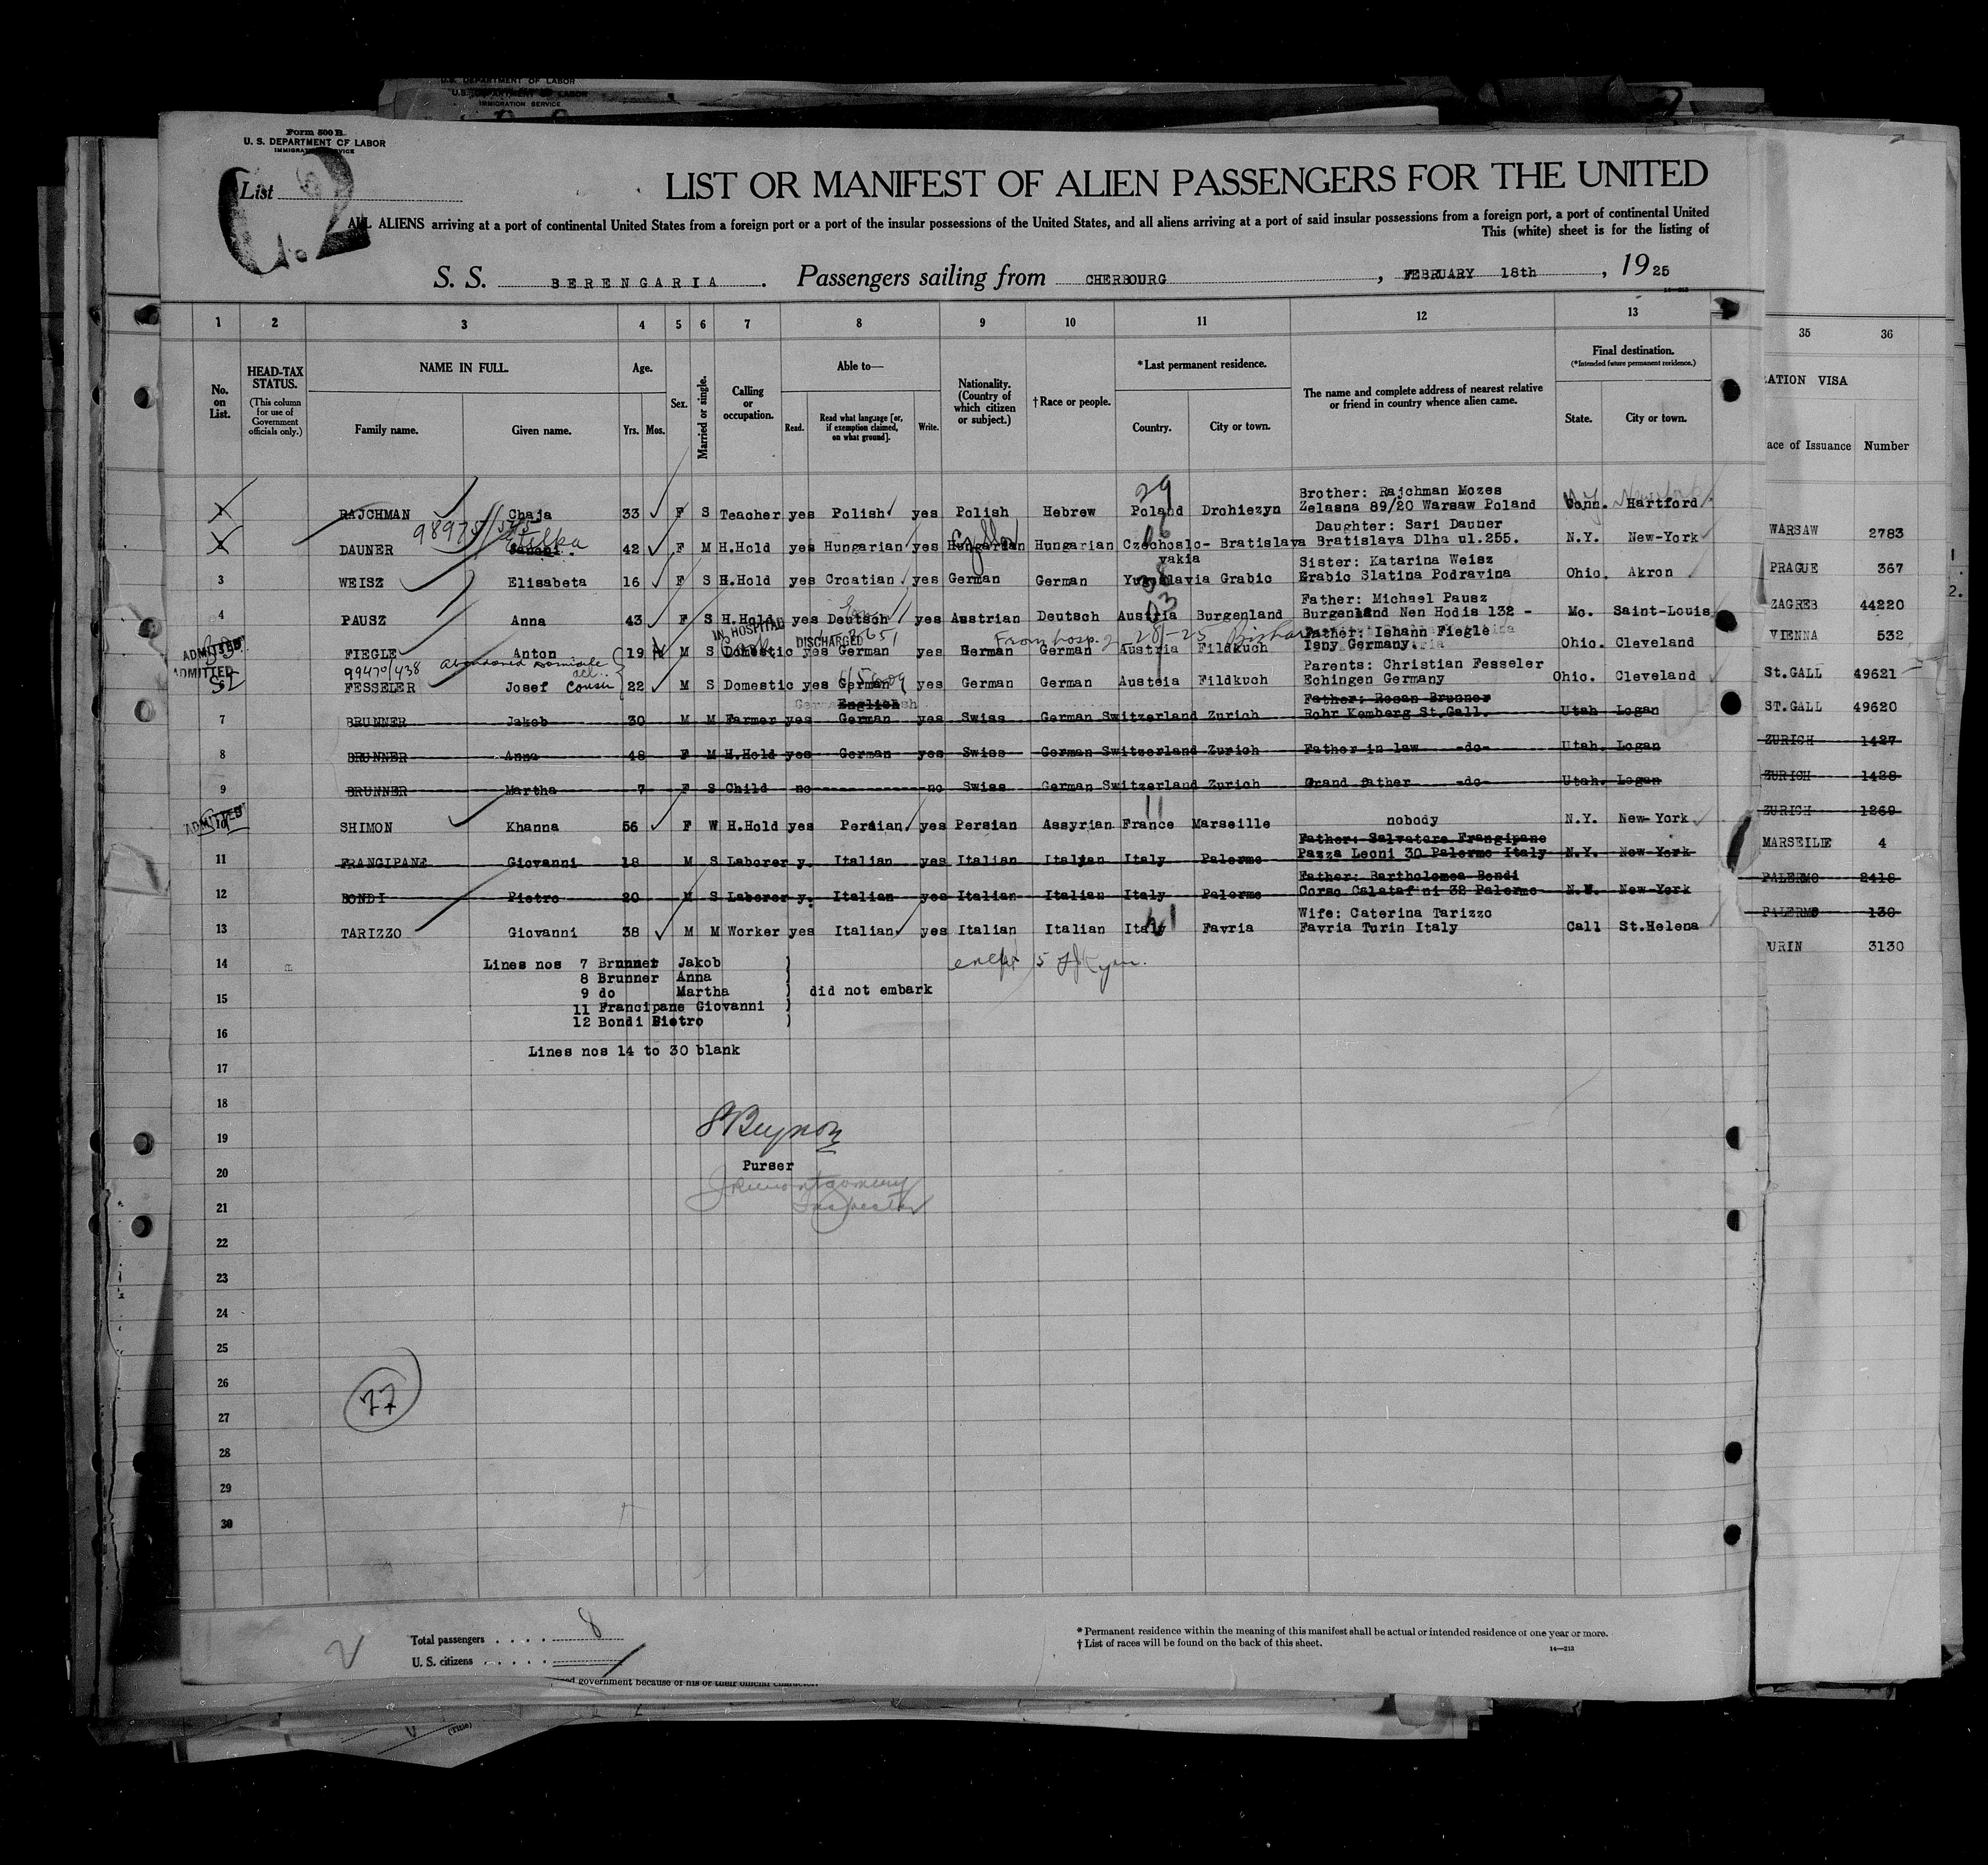 U. S. DEPARTMENT OF LABOR
U. S. DEPARTMENT OF LABOR
IMMIGRATION SERVICE
Form 500 B.
U. S. DEPARTMENT OF LABOR
IMMIGRATION SERVICE
List
2
LIST OR MANIFEST OF ALIEN PASSENGERS FOR THE UNITED
ALL ALIENS arriving at a port of continental United States from a foreign port or a port of the insular possessions of the United States, and all aliens arriving at a port of said insular possessions from a foreign port, a port of continental United
This (white) sheet is for the listing of
S. S. BERENGARIA. Passengers sailing from CHERBOURG, FEBRUARY 18th, 1925
1 2 3 4 5 6 7 8 9 10 11 12 13 35 36
No. on List.
HEAD-TAX STATUS.
(This column for use of Government officials only.)
NAME IN FULL.
Family name. Given name.
Age.
Yrs. Mos.
Sex.
Married or single.
Calling or occupation.
Able to—
Read. Read what language [or, if exemption claimed, on what ground]. Write.
Nationality. (Country of which citizen or subject.)
† Race or people.
* Last permanent residence.
Country. City or town.
The name and complete address of nearest relative or friend in country whence alien came.
Final destination.
(*Intended future permanent residence.)
State. City or town.
RATION VISA
ace of Issuance Number
RAJCHMAN Chaja 33 F S Teacher yes Polish yes Polish Hebrew Poland Drohiezyn Brother: Rajchman Mozes Zelasna 89/20 Warsaw Poland Conn. Hartford
29
98975/575
Etelka
DAUNER 42 F M H.Hold yes Hungarian yes Hungarian Hungarian Czechoslo-vakia Bratislava Daughter: Sari Dauner Bratislava Dlha ul.255. N.Y. New-York WARSAW 2783
3 WEISZ Elisabeta 16 F S H.Hold yes Croatian yes German German Yugoslavia Grabic Sister: Katarina Weisz Grabic Slatina Podravina Ohio. Akron PRAGUE 367
4 PAUSZ Anna 43 F S H.Hold yes Deutsch yes Austrian Deutsch Austria Burgenland Father: Michael Pausz Burgenland Nen Hodis 132 - Mo. Saint-Louis ZAGREB 44220
IN HOSPITAL
DISCHARGED
From hosp. 2-28-25
ADMITTED
FIEGLE Anton 19 M S Domestic yes German yes German German Austria Fildkuch Father: Iohann Fiegle Isny Germany. Ohio. Cleveland VIENNA 532
ADMITTED
99470/438
Abandoned Domicile
Cousin
FESSELER Josef 22 M S Domestic yes German yes German German Austria Fildkuch Parents: Christian Fesseler Echingen Germany Ohio. Cleveland St.GALL 49621
English
7 BRUNNER Jakob 30 M M Farmer yes German yes Swiss German Switzerland Zurich Father: Rosan Brunner Rohr Kemberg St.Gall. Utah Logan ST.GALL 49620
8 BRUNNER Anna 48 F M H.Hold yes German yes Swiss German Switzerland Zurich Father in law -do- Utah. Logan ZURICH 1427
9 BRUNNER Martha 7 F S Child no no Swiss German Switzerland Zurich Grand father -do- Utah. Logan ZURICH 1428
ADMITTED
11
SHIMON Khanna 56 F W H.Hold yes Persian yes Persian Assyrian France Marseille nobody N.Y. New-York ZURICH 1269
11 FRANCIPANE Giovanni 18 M S Laborer y. Italian yes Italian Italian Italy Palermo Father: Salvatore Frangipane Pazza Leoni 30 Palermo Italy N.Y. New-York MARSEILLE 4
12 BONDI Pietro 20 M S Laborer y. Italian yes Italian Italian Italy Palermo Father: Bartholomea Bondi Corso Calatafini 32 Palermo N.Y. New-York PALERMO 2418
PALERMO 130
13 TARIZZO Giovanni 38 M M Worker yes Italian yes Italian Italian Italy Favria Wife: Caterina Tarizzo Favria Turin Italy Call St.Helena
URIN 3130
14 Lines nos 7 Brunner Jakob
8 Brunner Anna
15 9 do Martha did not embark
11 Francipane Giovanni
16 12 Bondi Pietro
Lines nos 14 to 30 blank
17
18
19
Purser
20
Inspector
21
22
23
24
25
26
77
27
28
29
30
Total passengers . . . . 8
U. S. citizens . . . . .
* Permanent residence within the meaning of this manifest shall be actual or intended residence of one year or more.
† List of races will be found on the back of this sheet.
14—213
government because of his or their official character.
(Title)